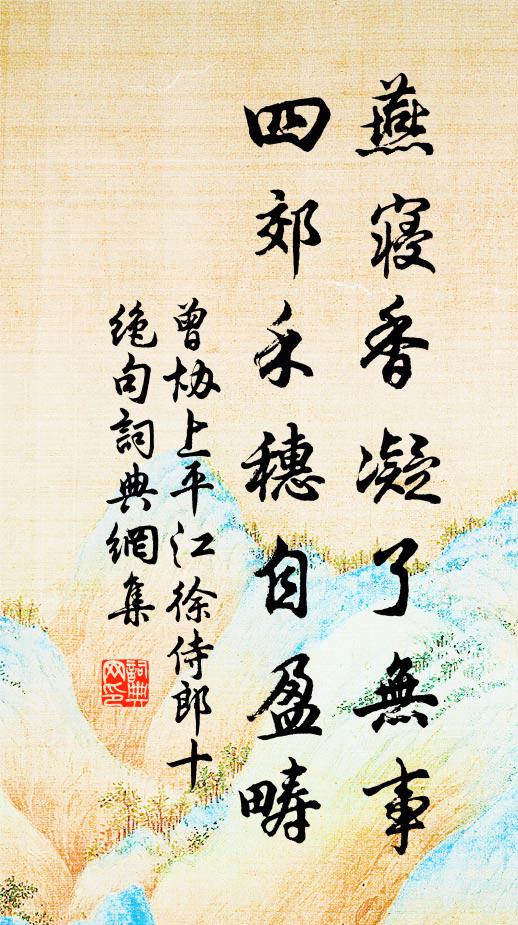 燕寢香凝了無事
四郊禾穗自盈疇
曾协上平江徐侍郎十
绝句詞典網集
詞典
网印